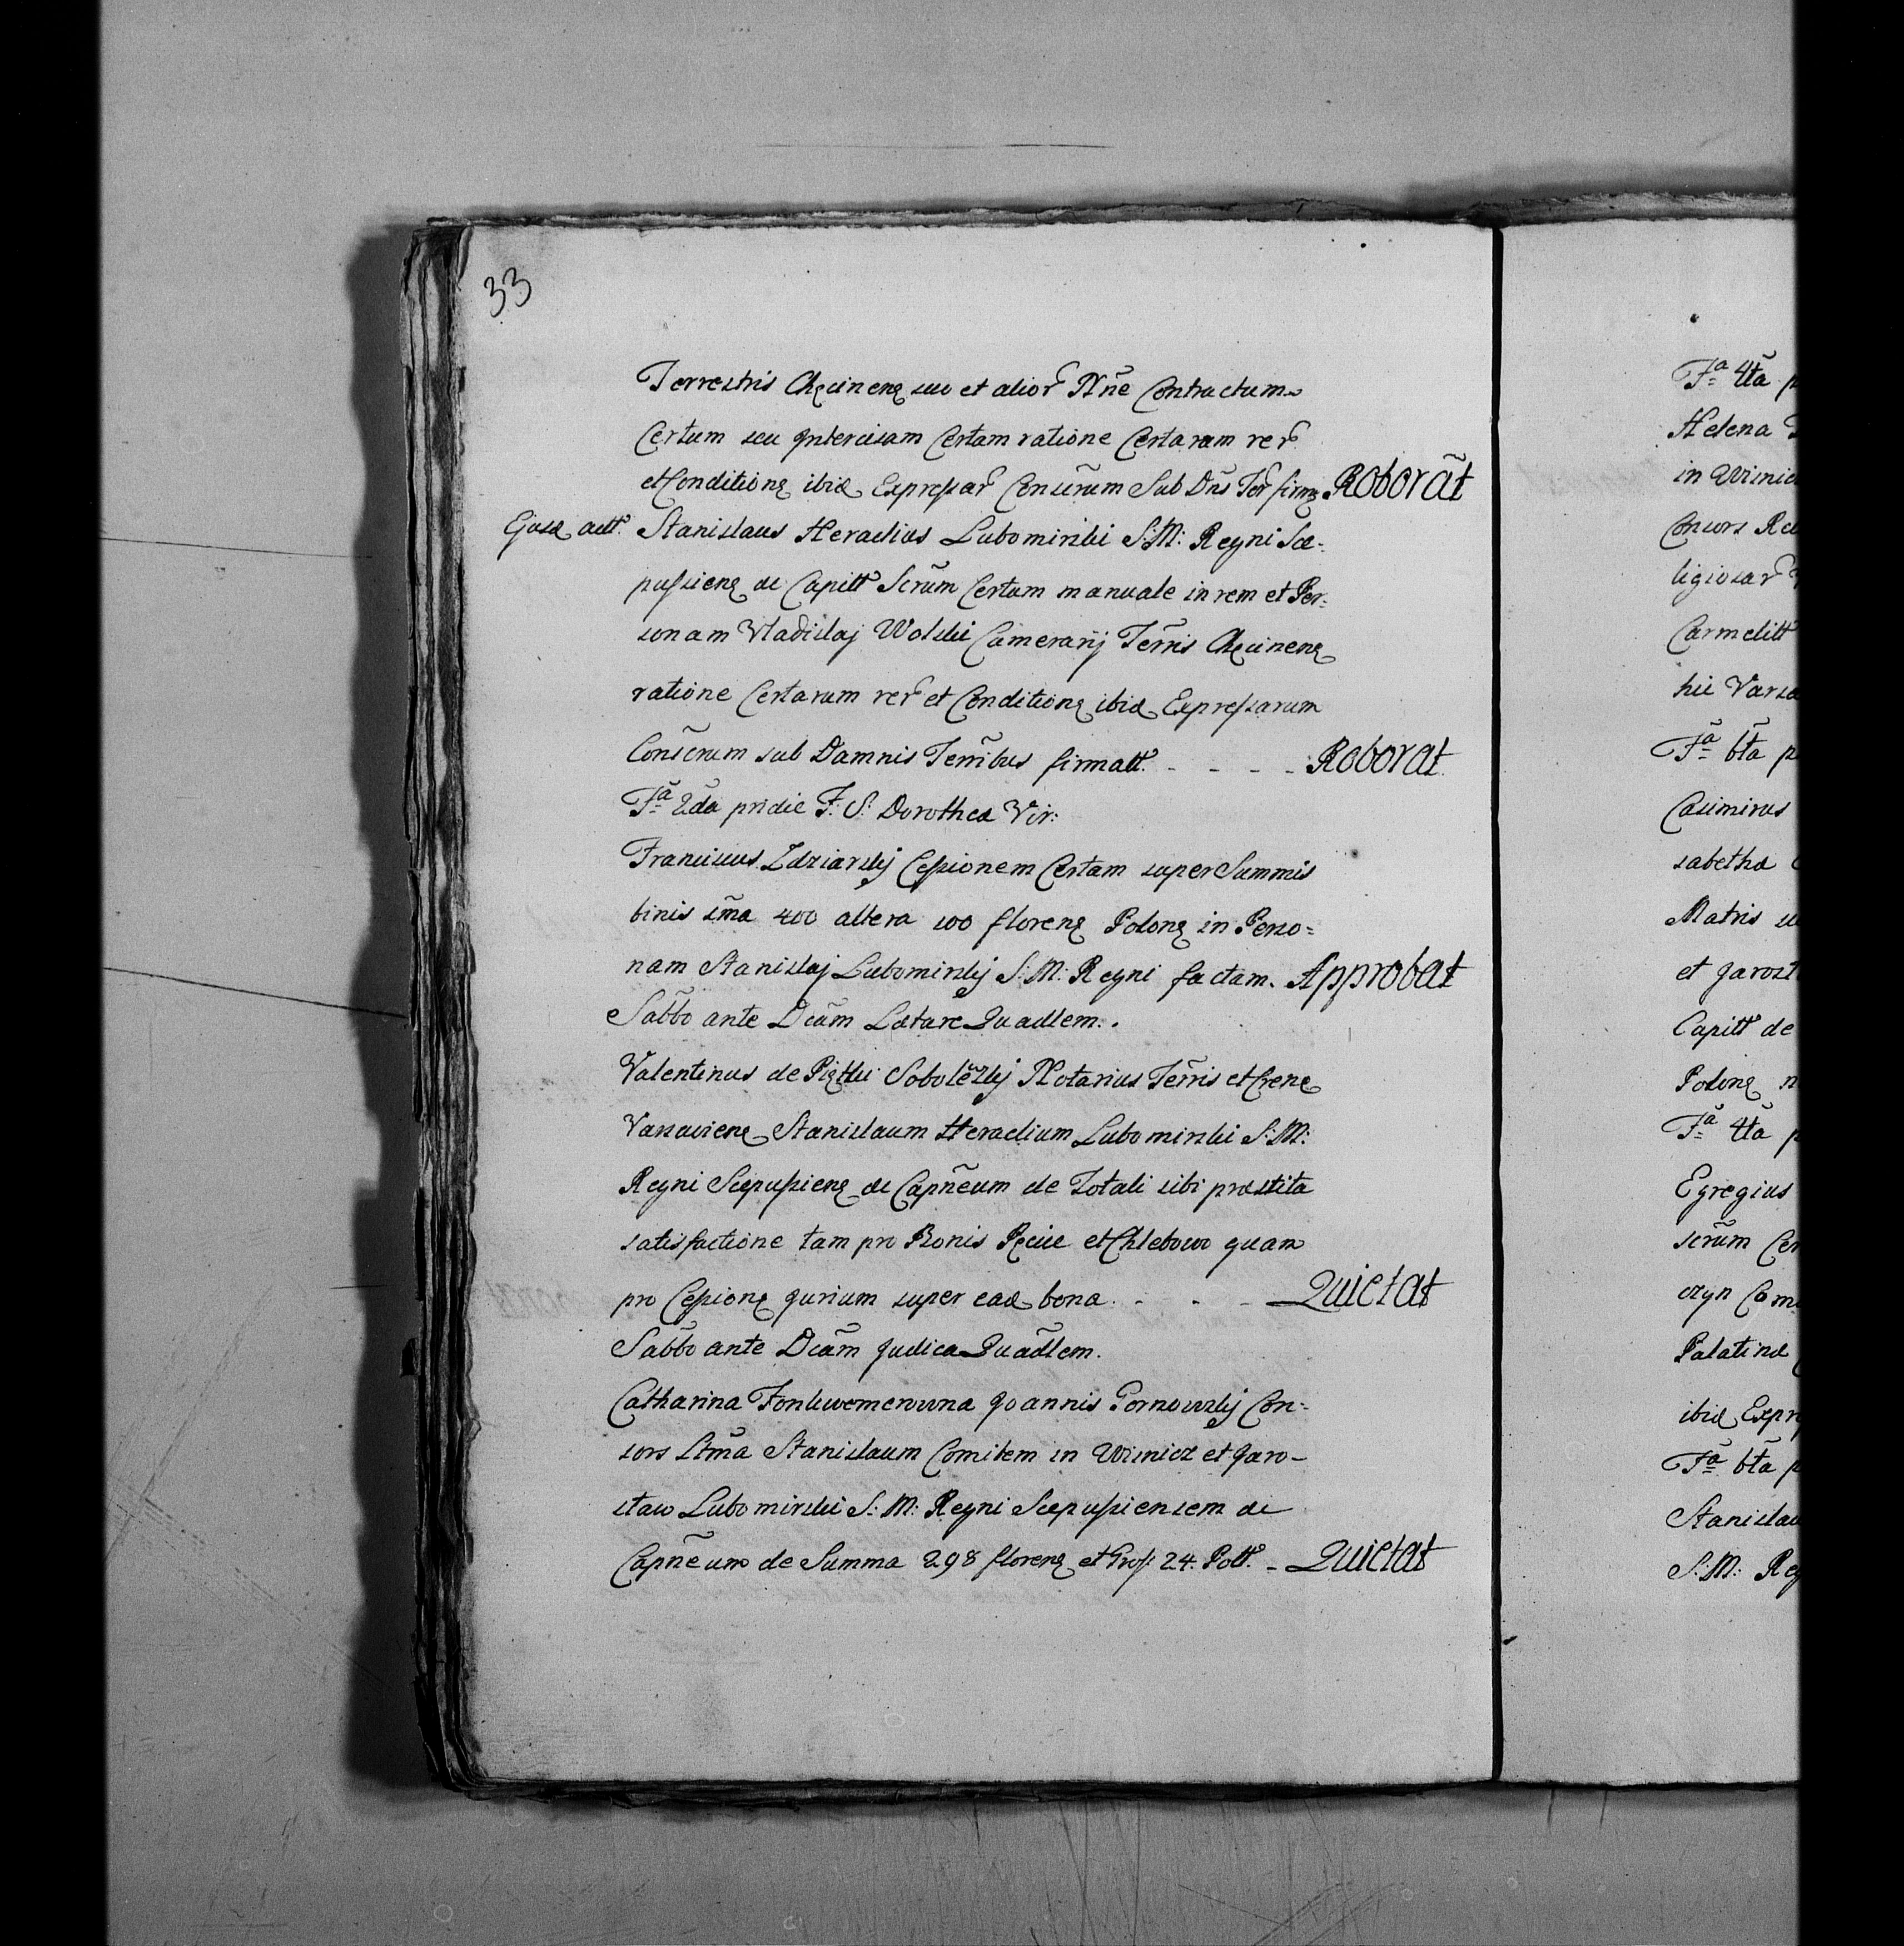 33
Terrestris Chęcinenę suo et alior Nñe Contractum
Certum seu Intercisam Certam ratione Certarum rer
et Conditionę ibid Expressar Conscrũm Sub Dñis Ter firmę Roborãt
Ejusd actt. Stanislaus Heraclius Lubomirski S: M: Regni Sce=
pussienę de Capitt Scrũm Certum manuale in rem et Per=
sonam Vladislaj Wolski Camerarij Terris Chęcinenę
ratione Certarum rer et Conditionę ibid Expressarum
Conscrum sub Damnis Terribus firmatt. - - - - Roborat.
Fã 2da pridie F: S: Dorothea Vir:
Franciscus Zdziarskj Cessionem Certam super Summis
binis una 400 altera 100 florenę Polonę in Perso=
nam Stanislaj Lubomirskj S: M: Regni factam. Approbat
Sabbo ante Dcãm Lætare Quadlem.
Valentinus de Piętki Sobolewskj Notarius Terris et Crenę
Varsavienę Stanislaum Heraclium Lubomirski S: M:
Regni Scepussienę de Capñeum de Totali sibi præstita
satisfactione tam pro Bonis Ręcice et Chlebowo quam
pro Cessionę jurium super ead bona. - - - Quietat
Sabbo ante Dcãm Judica Quadlem.
Catharina Joannis Gornowskj Con=
sors Stanislaum Comitem in Wisnicz et Jaro-
slaw Lubomirski S: M: Regni Scepussiensem de
Capñeum de Summa 298 florenę et Gross 24. Poll. - Quietat
Fã 4ta p
Helena
in Wisnic
Consors Re
ligiosar
Carmelitt
hic Varsa
Fã 6ta p
Casimirus
sabetha
Matris su
et Jarosl
Capitt de
Polonę n
Fã 4ta p
Egregius
scrũm Cer
czyn Cam
Palatinæ
ibid Expr
Fã 6ta p
Stanislau
S: M: Reg